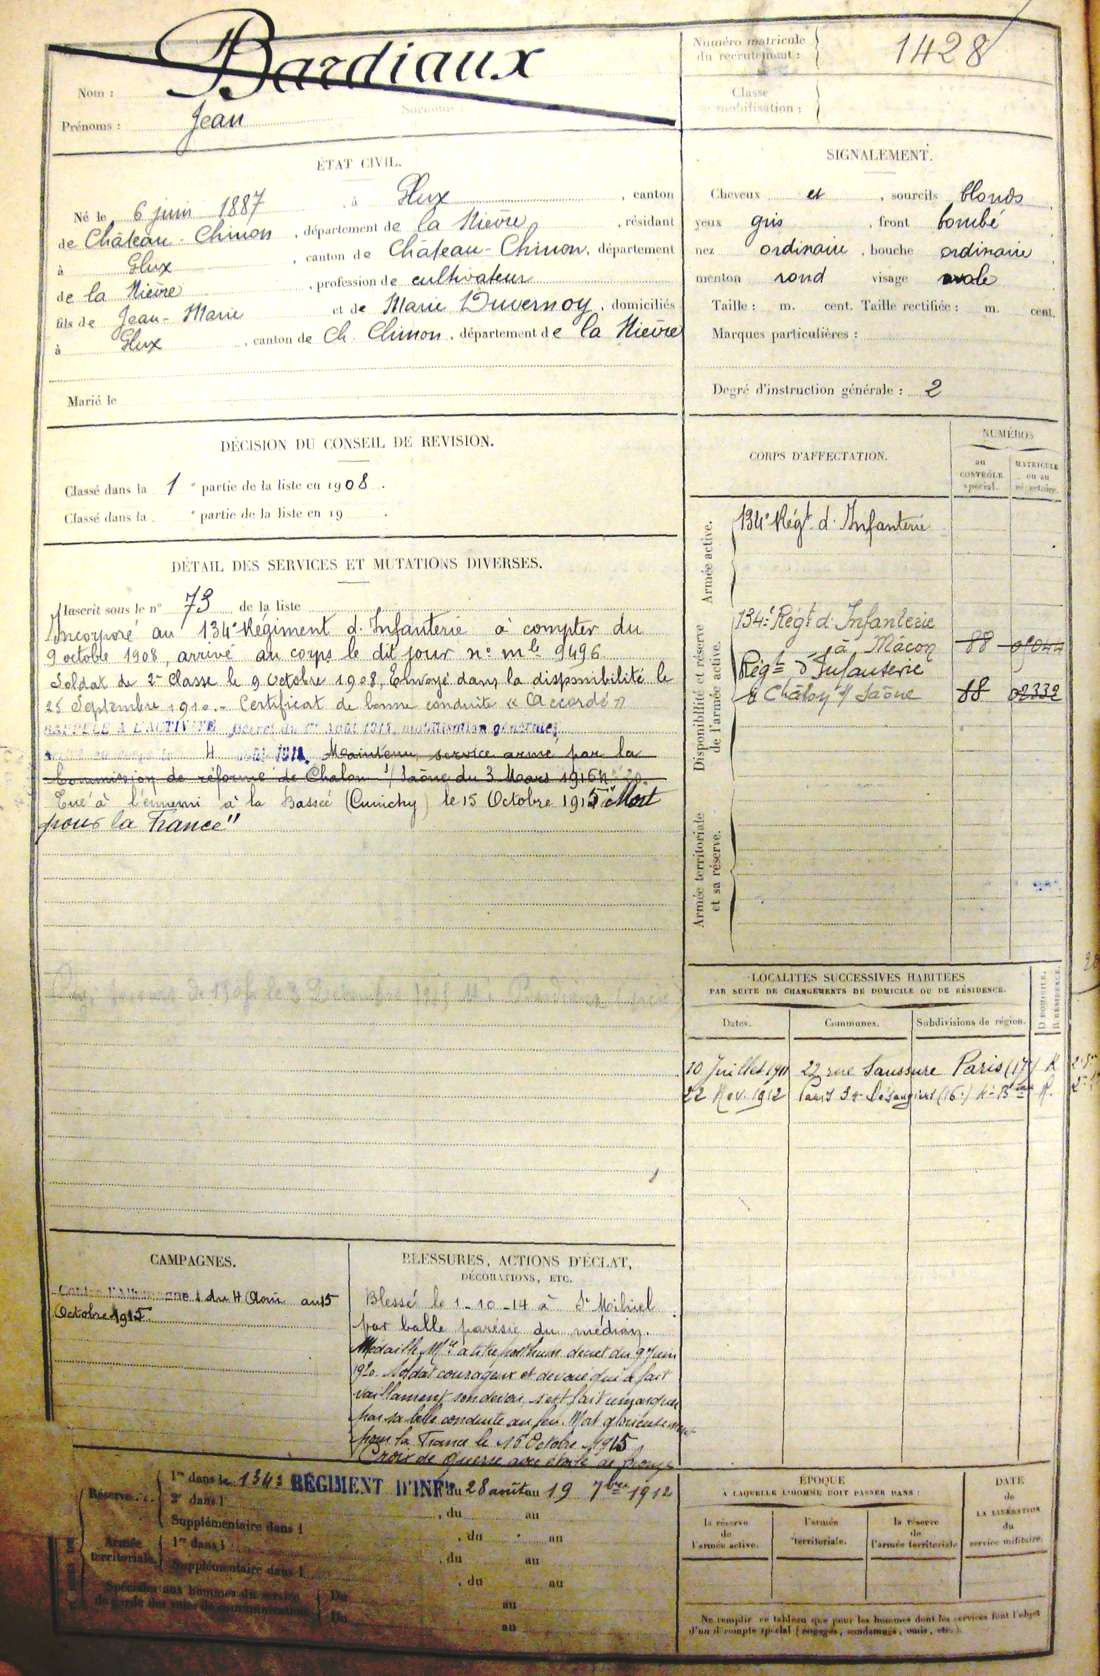 Nom : Bardiaux
Prénoms : Jean Surnoms
Numéro matricule du recrutement : 1428
Classe de mobilisation :
ÉTAT CIVIL.
Né le 6 juin 1887, à Glux, canton
de Château-Chinon, département de la Nièvre, résidant
à Glux, canton de Château-Chinon, département
de la Nièvre, profession de cultivateur
fils de Jean-Marie et de Marie Duvernoy, domiciliés
à Glux, canton de Ch. Chinon, département de la Nièvre
Marié le
SIGNALEMENT.
Cheveux et, sourcils blonds
yeux gris, front bombé
nez ordinaire, bouche ordinaire
menton rond visage ovale
Taille : m. cent. Taille rectifiée : m. cent.
Marques particulières :
Degré d'instruction générale : 2
DÉCISION DU CONSEIL DE REVISION.
Classé dans la 1 e partie de la liste en 1908.
Classé dans la e partie de la liste en 19 .
DÉTAIL DES SERVICES ET MUTATIONS DIVERSES.
Inscrit sous le n° 73 de la liste
Incorporé au 134e Régiment d'Infanterie à compter du
9 octobre 1908, arrivé au corps le dit jour n° mle 9496
Soldat de 2e Classe le 9 Octobre 1908, Envoyé dans la disponibilité le
25 Septembre 1910. - Certificat de bonne conduite « Accordé »
RAPPELÉ A L'ACTIVITÉ Décret du 1er août 1914, mobilisation générale
4 août 1914. Maintenu service armé par la
Commission de réforme de Chalon s/ Saône du 3 Mars 1915
Tué à l'ennemi à la Bassée (Cuinchy) le 15 Octobre 1915 "Mort
pour la France"
CORPS D'AFFECTATION.
NUMÉROS
au CONTRÔLE spécial.
MATRICULE ou au répertoire.
Armée active.
134e Régt d'Infanterie
Disponibilité et réserve de l'armée active.
134e Régt d'Infanterie
à Mâcon 88
Régt d'Infanterie
de Chalon s/ Saône 88 02332
Armée territoriale et sa réserve.
LOCALITÉS SUCCESSIVES HABITÉES
PAR SUITE DE CHANGEMENTS DE DOMICILE OU DE RÉSIDENCE.
Dates. Communes. Subdivisions de région. D DOMICILE. R RÉSIDENCE.
10 Juillet 1911 27 rue Saussure Paris (17e) R
22 Nov. 1912 Paris (16e) R.
CAMPAGNES.
Contre l'Allemagne du 4 Août au 15
Octobre 1915.
BLESSURES, ACTIONS D'ÉCLAT,
DÉCORATIONS, ETC.
Blessé le 1-10-14 à St Mihiel
par balle parésie du médian.
Médaille Mre à titre posthume décret du 9 Juin
1920. Soldat courageux et dévoué qui a fait
vaillamment son devoir, s'est fait remarquer
par sa belle conduite au feu. Mort glorieusement
pour la France le 15 Octobre 1915
Croix de guerre avec étoile de bronze
Réserve.
1re dans le 134e RÉGIMENT D'INFrie du 28 août au 19 7bre 1912
2e dans l , du au
Supplémentaire dans l , du au
Armée territoriale.
1re dans l , du au
Supplémentaire dans l , du au
Spéciales aux hommes du service de garde des voies de communication
Du au
Du au
ÉPOQUE
A LAQUELLE L'HOMME DOIT PASSER DANS :
la réserve de l'armée active.
l'armée territoriale.
la réserve de l'armée territoriale
DATE de LA LIBÉRATION du service militaire.
Ne remplir ce tableau que pour les hommes dont les services font l'objet
d'un décompte spécial (engagés, condamnés, omis, etc.).